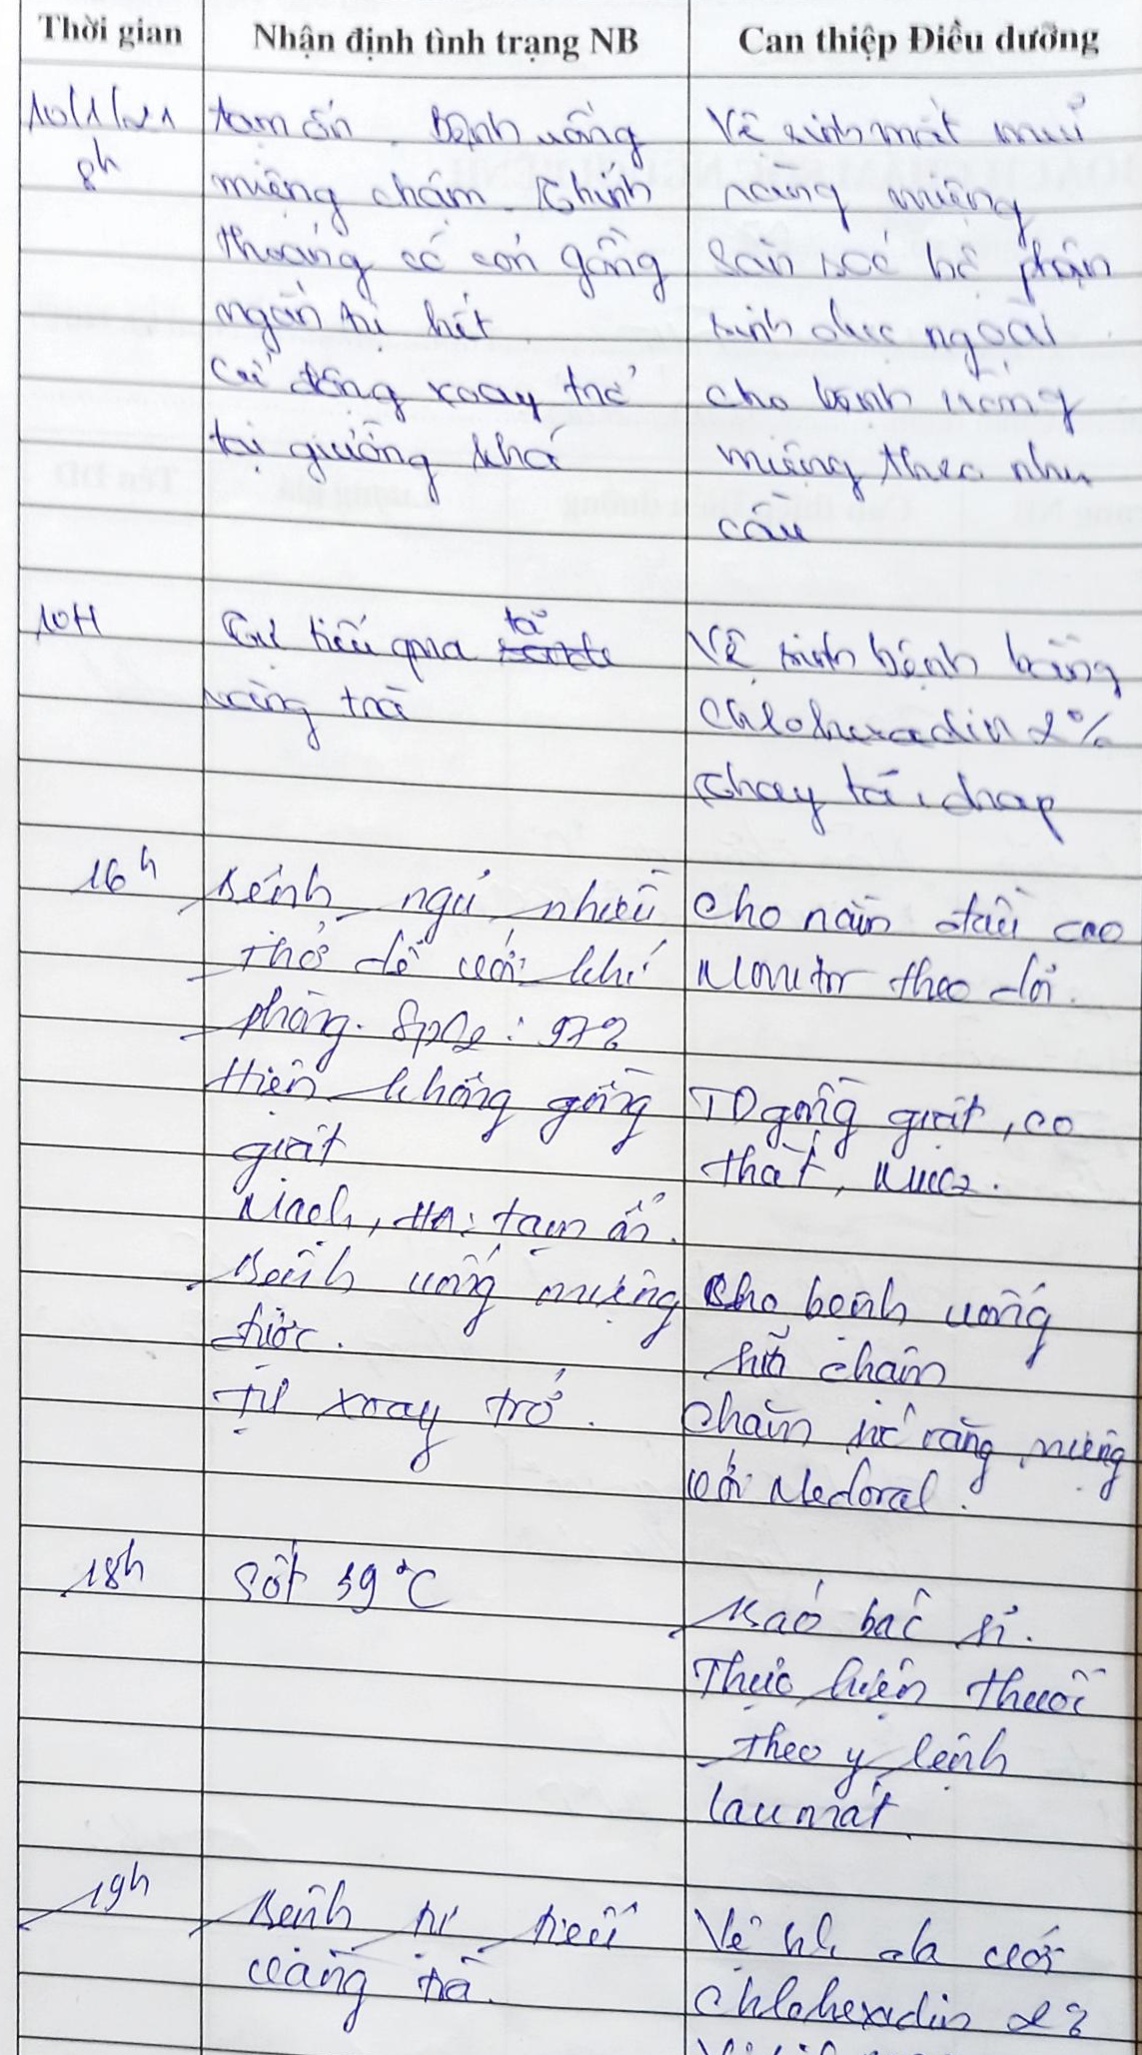 Thời gian
Nhận định tình trạng NB
Can thiệp Điều dưỡng
10/1/21
8h
tạm ổn. Bệnh uống
miệng chậm. Thỉnh
thoảng có cơn gồng
ngắn tự hết
Cử động xoay trở
tại giường khá
Vệ sinh mắt mũi
răng miệng
Săn sóc bộ phận
sinh dục ngoài
cho bệnh uống
miệng theo nhu
cầu
10H
tiểu qua tã
vàng trà
Vệ sinh bệnh bằng
Chlohexadin 2%
Thay tã, drap
16h
Bệnh ngủ nhiều
Thở dễ với khí
phòng. SpO2: 97%
Hiện không gồng
giật
Mạch, HA: tạm ổn.
Bệnh uống miệng
được.
Tự xoay trở.
Cho nằm đầu cao
Monitor theo dõi.
TD gồng giật, co
thắt,
Cho bệnh uống
sữa chậm
Chăm sóc răng miệng
với Medoral.
18h
Sốt 39°C
Báo bác sĩ.
Thực hiện thuốc
theo y lệnh
Lau mát.
19h
Bệnh tự tiểu
vàng trà.
Vệ sinh da với
Chlohexadin 2%